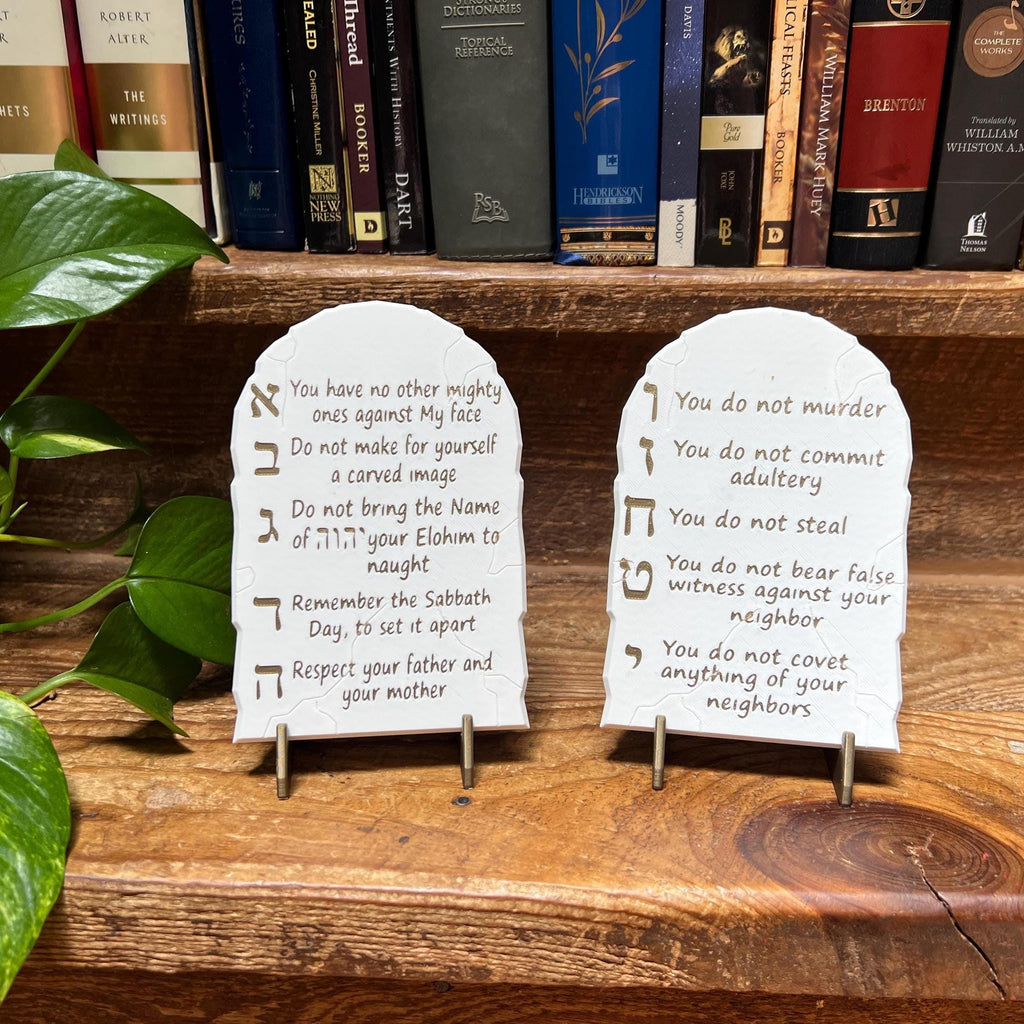 ROBERT
ALTER
HETS
THE
WRITINGS
CHRISTINE MILLER
NOTHING
NEW
PRESS
Thread
BOOKER
WITH HISTORY
DART
DICTIONARIES
TOPICAL
REFERENCE
RSB
HENDRICKSON
BIBLES
DAVIS
MOODY
Pure
Gold
JOHN
FOXE
BL
FEASTS
BOOKER
WILLIAM MARK HUEY
BRENTON
H
THE
COMPLETE
WORKS
Translated by
WILLIAM
WHISTON, A.M
THOMAS
NELSON
א You have no other mighty
ones against My face
ב Do not make for yourself
a carved image
ג Do not bring the Name
of יהוה your Elohim to
naught
ד Remember the Sabbath
Day, to set it apart
ה Respect your father and
your mother
ו You do not murder
ז You do not commit
adultery
ח You do not steal
ט You do not bear false
witness against your
neighbor
י You do not covet
anything of your
neighbors